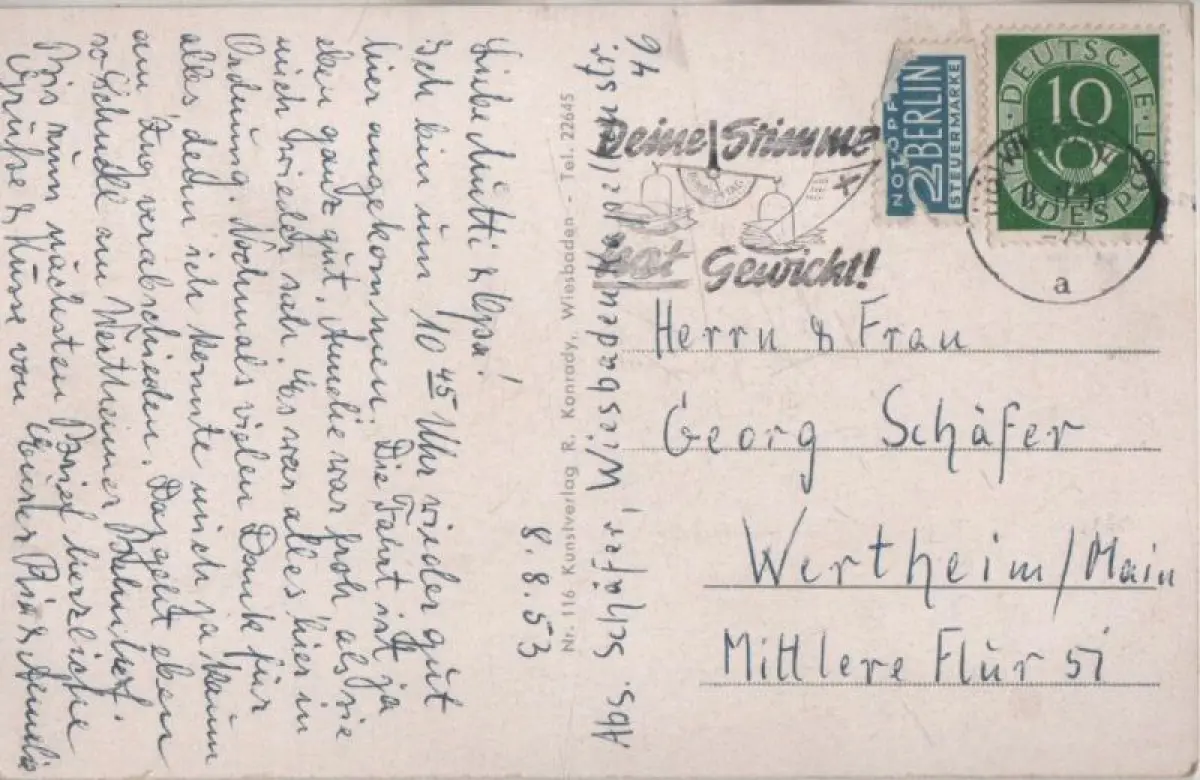 8.8.53
Liebe Mutti & Opa!
Ich bin um 10 45 Uhr wieder gut
hier angekommen. Die Fahrt ist ja
eben ganz gut. Annelie war froh als sie
mich wieder sah. Es war alles hier in
Ordnung. Nochmals vielen Dank für
alles denn ich konnte mich ja kaum
am Zug verabschieden. Das geht eben
so schnell am Wertheimer Bahnhof.
Bis zum nächsten Brief herzliche
Grüße & Küsse von & Annelie
Nr. 116 Kunstverlag R. Konrady, Wiesbaden - Tel. 22645
Abs. S. Schäfer, Wiesbaden Kapellenstr.
46
Deine Stimme
hat Gewicht!
NOTOPFER
2 BERLIN
STEUERMARKE
DEUTSCHE
10
BUNDESPOST
a
Herrn & Frau
Georg Schäfer
Wertheim/Main
Mittlere Flur 51